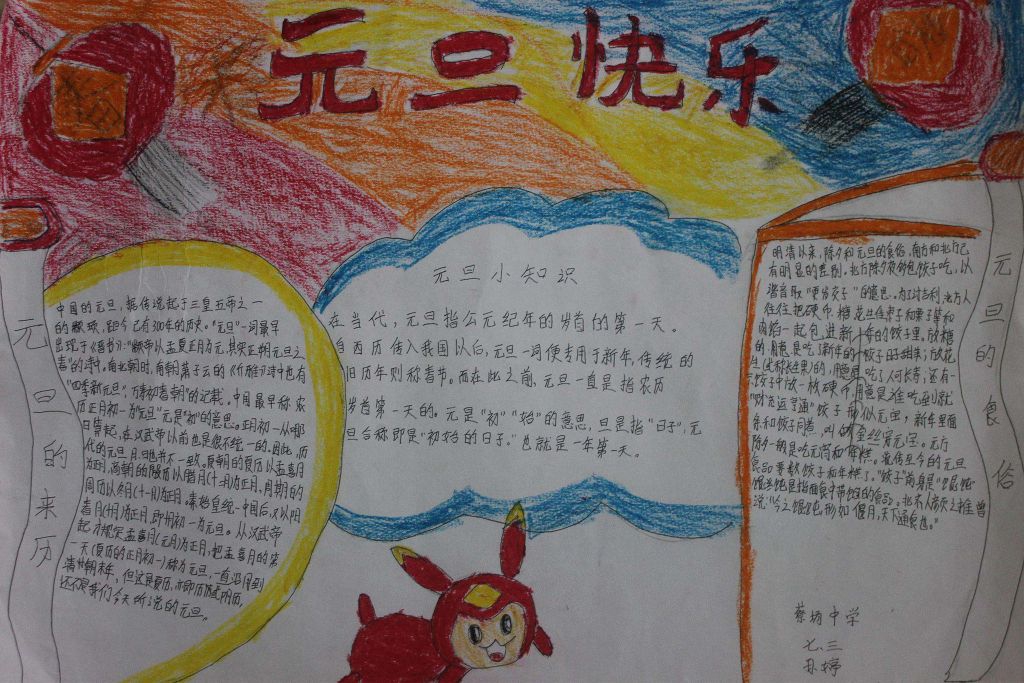 元旦快乐
元旦的来历
中国的元旦，据传说起于三皇五帝之一
的颛顼，距今已有3000年的历史。"元旦"一词最早
出现于《晋书》："颛帝以孟夏正月为元，其实正朔元旦之
春"的诗中。南北朝时，南朝萧子云的《介雅》诗中也有
"四季新元旦，万寿初春朝"的记载。中国最早称农
历正月初一为"元旦"元是"初"的意思。正月初一从哪
日算起，在汉武帝以前也是很不统一的。因此，历
代的元旦月、日也并不一致。夏朝的夏历以孟喜月
为正月，商朝的殷历以腊月(十二月)为正月，周朝的
周历以冬月(十一月)为正月。秦始皇统一中国后，又以阳
春月(十月)为正月，即十月初一为元旦。从汉武帝
起，才规定孟喜月(元月)为正月，把孟喜月的第
一天(夏历的正月初一)称为元旦，一直沿用到
清朝末年，但这是夏历，亦即历或阴历，
还不是我们今天所说的元旦。
元旦小知识
在当代，元旦指公元纪年的岁首的第一天。
自西历传入我国以后，元旦一词便专用于新年，传统的
旧历年则称春节。而在此之前，元旦一直是指农历
岁首第一天的。元是"初""始"的意思，旦是指"日子"，元
旦合称即是"初始的日子。"也就是一年第一天。
元旦的食俗
明清以来，除夕和元旦的食俗，南方和北方已
有明显的差别。北方除夕夜多包饺子吃，以
谐音取"更岁交子"的意思。为了讨吉利，北方人
往往把硬币、糖、花生、枣子和栗子等和
肉馅一起包进新年的饺子里。放糖
的用意是吃了新年的饺子日子甜美；放花
生(或称长生果)的，用意是吃了人可长寿；还有一
饺子中放一枚硬币，用意是谁吃到就
"财运亨通"饺子形似元宝，新年里面
条和饺子同煮，叫做"金丝穿元宝。元旦
除夕一般是吃元宵和年糕。流传至今的元旦
食品要数饺子和年糕了。
说："今之馄饨，形如偃月，天下通食也。"
蔡坊中学
七、三